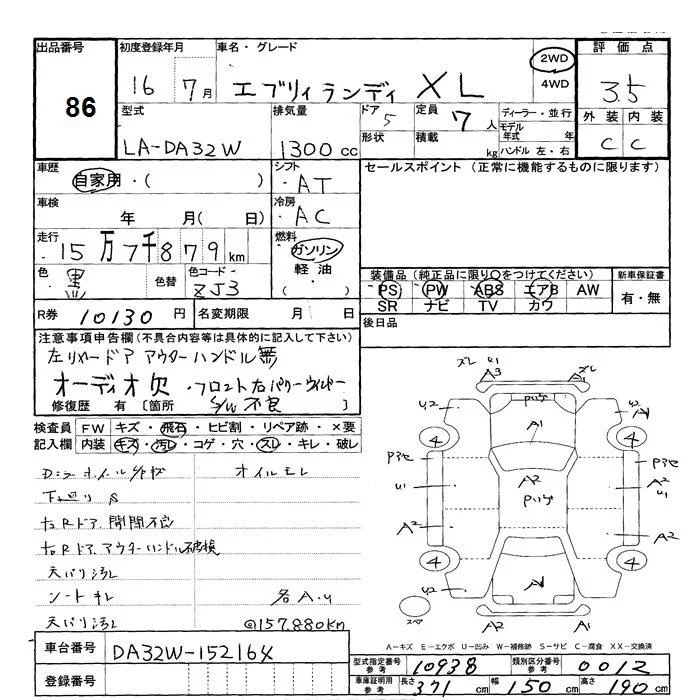 出品番号 初度登録年月 車名・グレード 評価点
86 16 7月 エブリィランディ XL 2WD 4WD 3.5
型式 排気量 ドア 定員 ディーラー・並行 外装 内装
LA-DA32W 1300cc 5 7人 モデル年式 年 C C
形状 積載 kg ハンドル 左・右
車歴 シフト セールスポイント (正常に機能するものに限ります)
自家用・( ) ・AT
車検 冷房
年 月( 日) ・AC
走行 燃料
15万7千879km ガソリン
軽油・( )
色 黒 色替 色コード ZJ3
装備品(純正品に限り○をつけてください) 新車保証書
PS PW ABS エアB AW 有・無
SR ナビ TV カワ
R券 10130円 名変期限 月 日
後日品
注意事項申告欄(不具合内容等は具体的に記入して下さい)
左リヤードア アウターハンドル無
オーディオ欠 ・フロント左パワーウィンドー
S/W不良
修復歴 有 [箇所 ]
検査員 FW キズ・飛石・ヒビ割・リペア跡・×要
記入欄 内装 キズ・汚レ・コゲ・穴・スレ・キレ・破レ
オイルモレ
下廻りS
右Rドア開閉不良
右Rドアアウターハンドル破損
天バリ汚レ
シートキレ 各A.U
天バリ汚レ @157,880km
ズレ U1 A3 ズレ A1
U2 バリゲ U2 A1
4 A1 4
A2
U1 A2 U1
A2 A2
4 4
U2 A1
スペア A2 A2
A-キズ E-エクボ U-凹み W-補修跡 S-サビ C-腐食 XX-交換済
車台番号 DA32W-15216X
登録番号
型式指定番号 参考 10938 類別区分番号 参考 0012
車庫証明用 参考 長さ 371cm 幅 150cm 高さ 190cm